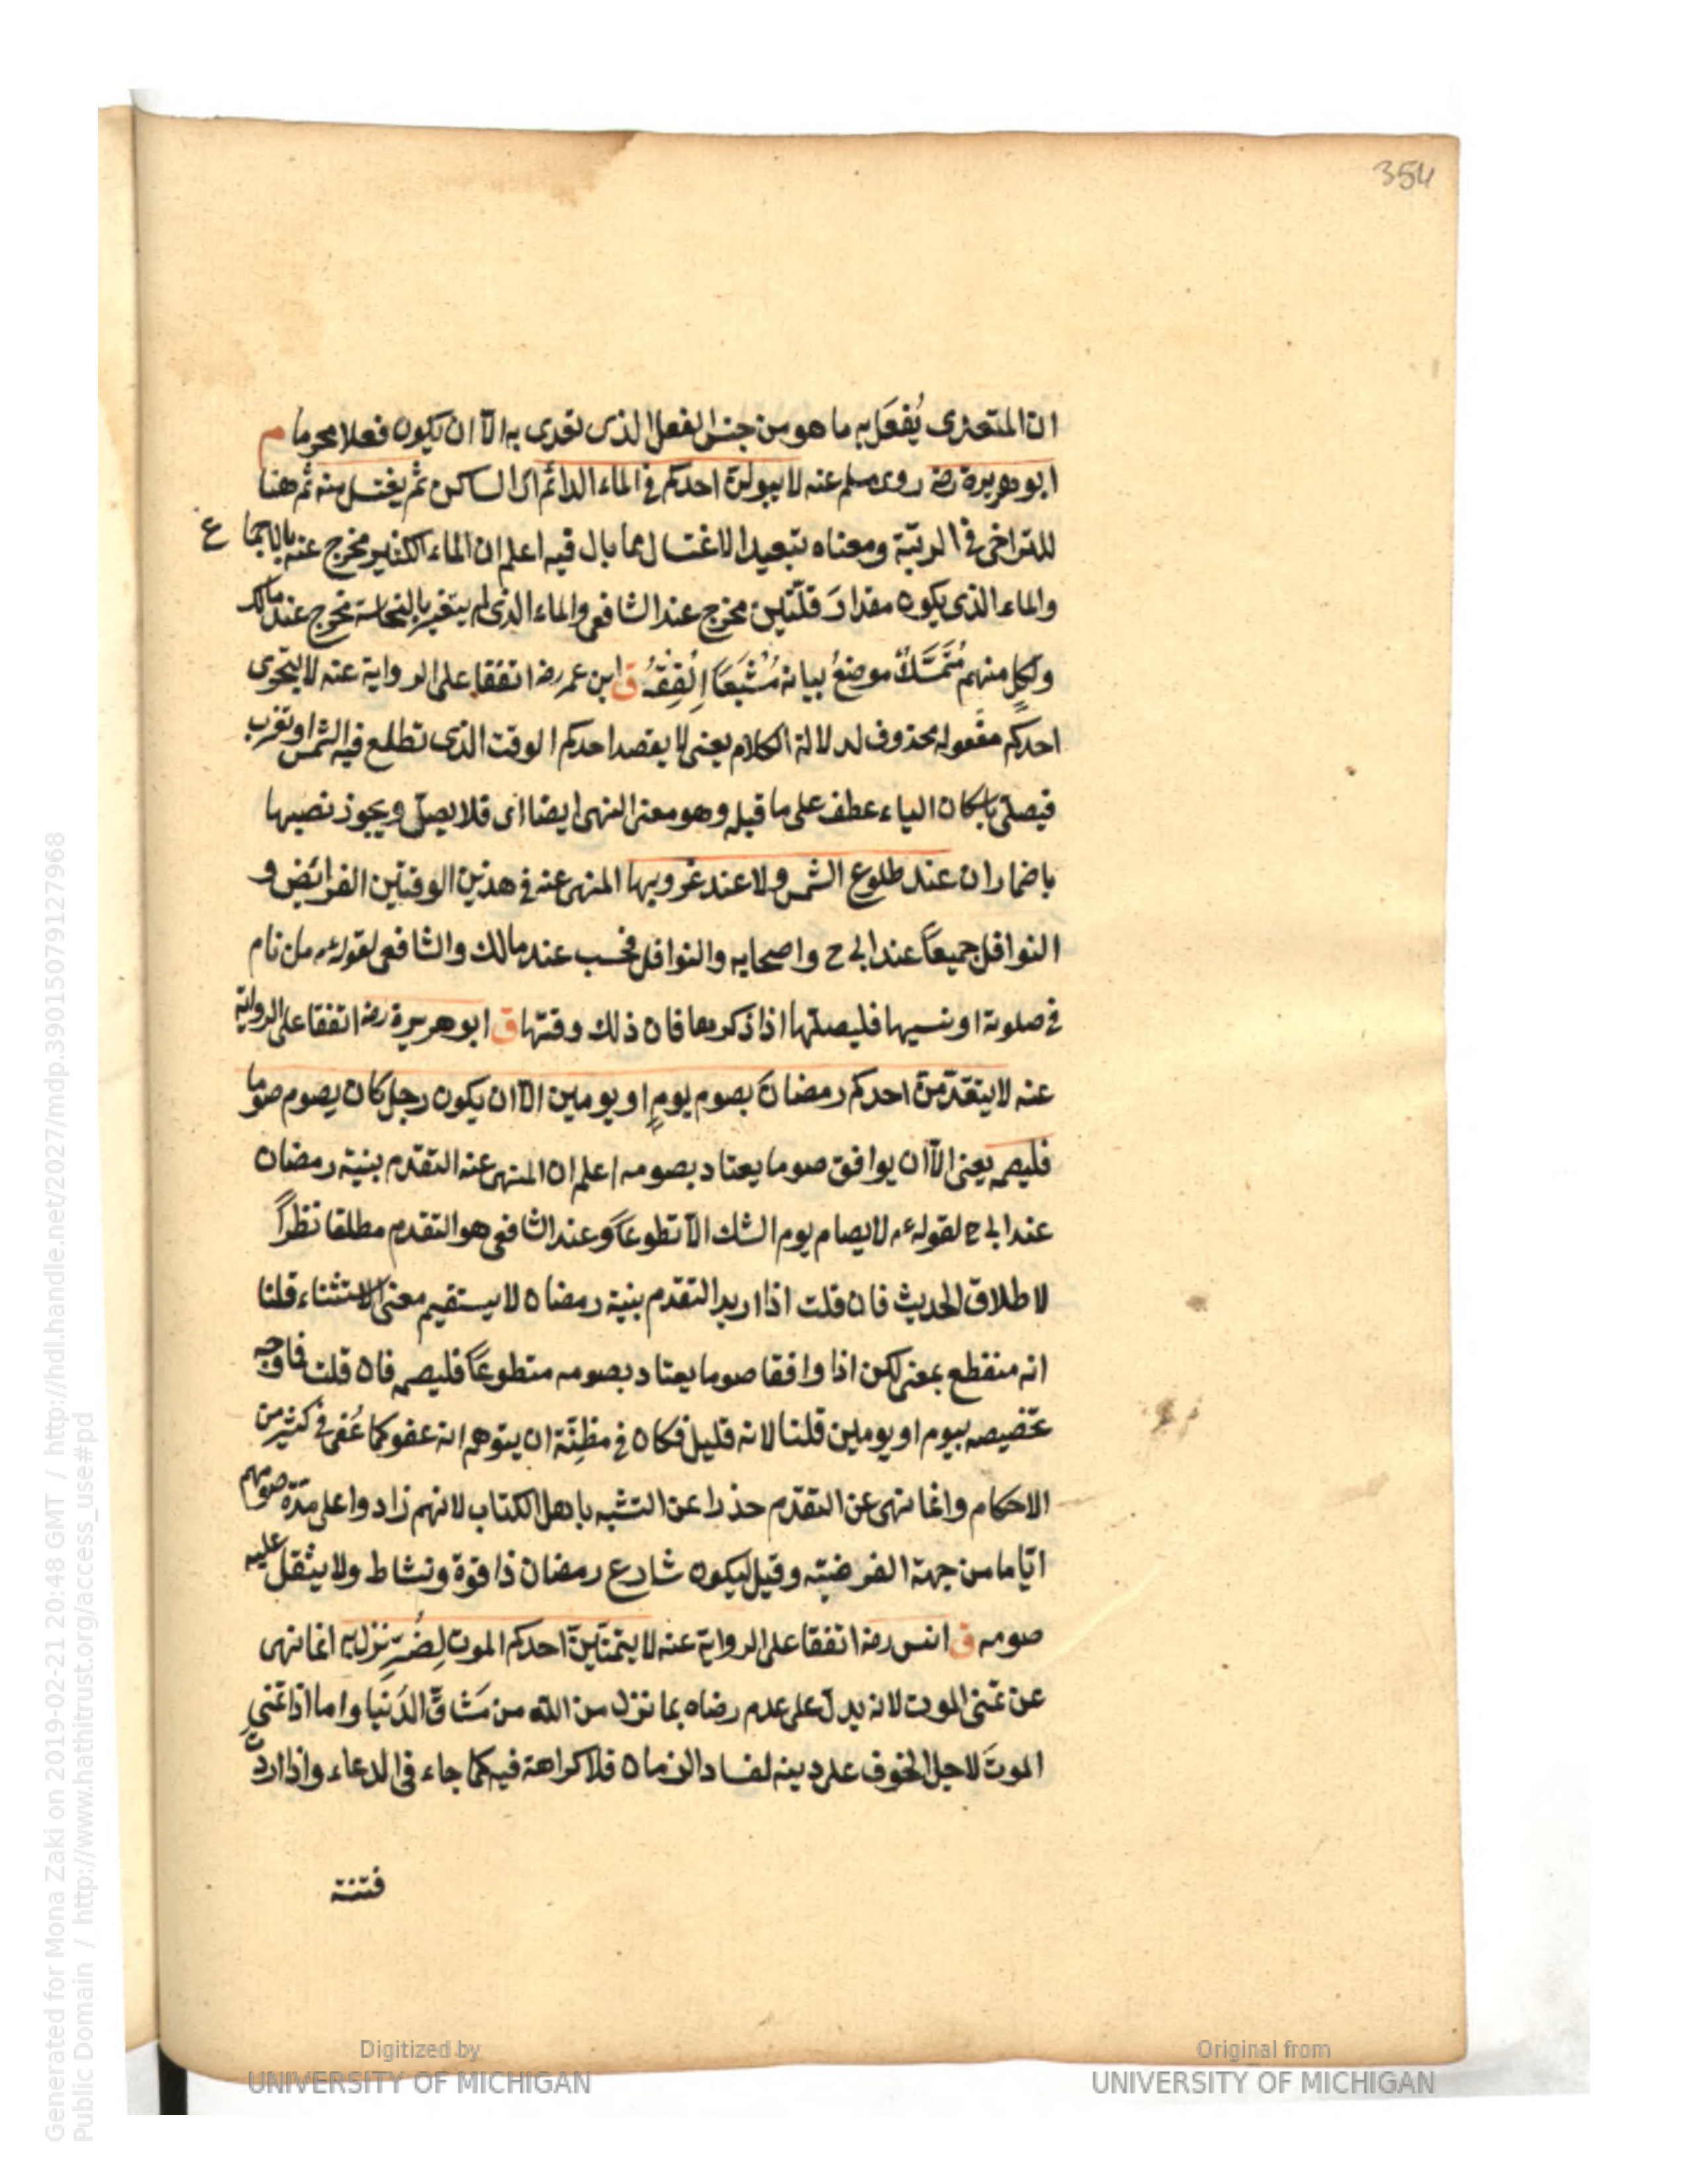 354
ان المتعدى يُفعَل به ما هو من جنس الفعل الذى تعدى به الّا ان يكون فعلا محرما م
ابو هريرة رضه روى مسلم عنه لا يبولنّ احدكم فى الماء الدائم اى الساكن ثم يغتسل منه ثم هنا
للتراخى فى الرتبة ومعناه تبعيد الاغتسال مما بال فيه اعلم ان الماء الكثير مخرج عنه بالاجماع
والماء الذى يكون مقدارَ قلّتين مخرج عند الشافعى والماء الذى لم يتغير بالنجاسة مخرج عند مالك
ولكلٍ منهم مُتَمَسَّكٌ موضعُ بيانه مُشْبَعًا اِلفِقهُ ق ابن عمر رضه اتفقا على الرواية عنه لا يتحرى
احدكم مفعوله محذوف لدلالة الكلام يعنى لا يقصد احدكم الوقت الذى تطلع فيه الشمس او تغرب
فيصلى باسكان الياء عطف على ما قبله وهو معنى النهى ايضا اى فلا يصلّ ويجوز نصبها
باضمار ان عند طلوع الشمس ولا عند غروبها المنهى عنه فى هذين الوقتين الفرائض و
النوافل جميعاً عند ابى ح واصحابه والنوافل فحسب عند مالك والشافعى لقوله ءم من نام
فى صلوته او نسيها فليصلها اذا ذكرها فان ذلك وقتها ق ابو هريرة رضه اتفقا على الرواية
عنه لا يتقدّمنّ احدكم رمضانَ بصوم يومٍ او يومين الّا ان يكون رجل كان يصوم صوما
فليصمه يعنى الّا ان يوافق صوما يعتاد بصومه اعلم ان المنهى عنه التقدم بنية رمضان
عند ابى ح لقوله ءم لا يصام يوم الشك الّا تطوعاً وعند الشافعى هو التقدم مطلقا نظراً
لاطلاق الحديث فان قلت اذا اريد التقدم بنية رمضان لا يستقيم معنى الاستثناء قلنا
انه منقطع بمعنى لكن اذا وافقا صوما يعتاد بصومه متطوعاً فليصمه فان قلت فاوجه
تخصيصه بيوم او يومين قلنا لانه قليل فكان فى مظِنّة ان يتوهم انه عفو كما عُفى فى كثير من
الاحكام وانما نهى عن التقدّم حذرا عن التشبه باهل الكتاب لانهم زادوا على مدّة صومهم
ايّاما من جهة الفرضيّه وقيل ليكون شارع رمضان ذا قوة ونشاط ولا يثقل عليه
صومه ق انس رضه اتفقا على الرواية عنه لا يتمنّينّ احدكم الموت لِضُرّ نزل به انما نهى
عن تمنى الموت لانه يدل على عدم رضاه بما نزل من الله من مَشاقّ الدَنيا واما اذا تمنى
الموتَ لاجل الخوف على دينه لفساد الزمان فلا كراهة فيه كما جاء فى الدعاء واذا اردتَ
فتنة
Digitized by
UNIVERSITY OF MICHIGAN
Original from
UNIVERSITY OF MICHIGAN
Generated for Mona Zaki on 2019-02-21 20:48 GMT / http://hdl.handle.net/2027/mdp.39015079127968
Public Domain / http://www.hathitrust.org/access_use#pd